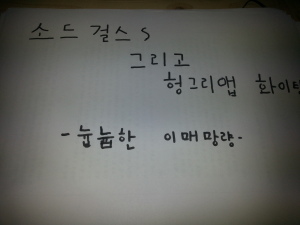 소드걸스 S
그리고
헝그리앱 화이팅
-눕눕한 이매망량-